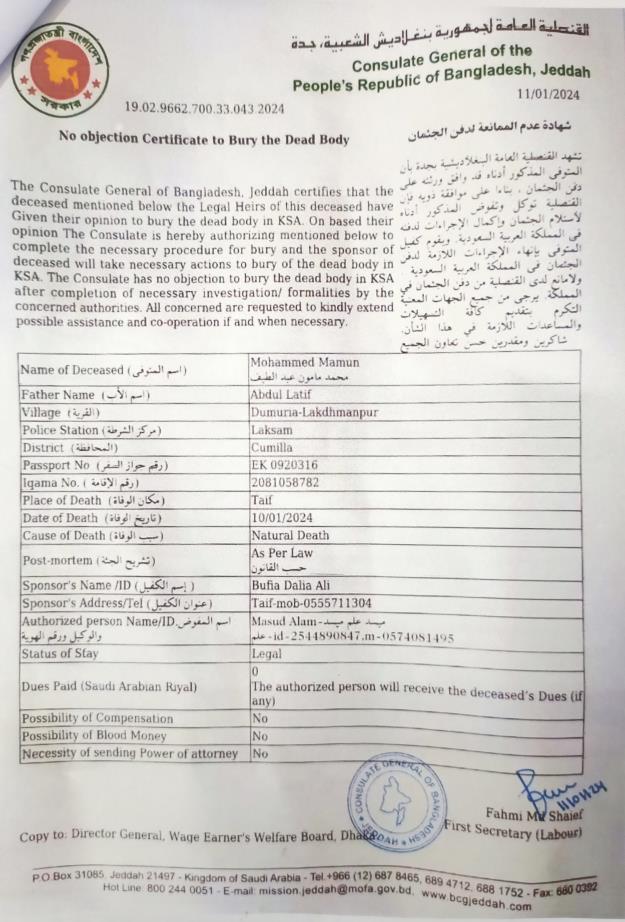 গণপ্রজাতন্ত্রী বাংলাদেশ
সরকার
القنصلية العامة لجمهورية بنغلاديش الشعبية، جدة
Consulate General of the
People's Republic of Bangladesh, Jeddah
11/01/2024
19.02.9662.700.33.043.2024
No objection Certificate to Bury the Dead Body
The Consulate General of Bangladesh, Jeddah certifies that the
deceased mentioned below the Legal Heirs of this deceased have
Given their opinion to bury the dead body in KSA. On based their
opinion The Consulate is hereby authorizing mentioned below to
complete the necessary procedure for bury and the sponsor of
deceased will take necessary actions to bury of the dead body in
KSA. The Consulate has no objection to bury the dead body in KSA
after completion of necessary investigation/ formalities by the
concerned authorities. All concerned are requested to kindly extend
possible assistance and co-operation if and when necessary.
شهادة عدم الممانعة لدفن الجثمان
تشهد القنصلية العامة البنغلاديشية بجدة بأن
المتوفى المذكور أدناه قد وافق ورثته على
دفن الجثمان ، بناءا على موافقة ذويه فإن
القنصلية توكل وتفوض المذكور أدناه
لأستلام الجثمان وإكمال الإجراءات لدفنه
في المملكة العربية السعودية. ويقوم كفيل
المتوفى بإنهاء الإجراءات اللازمة لدفن
الجثمان في المملكة العربية السعودية
ولامانع لدى القنصلية من دفن الجثمان في
المملكة يرجى من جميع الجهات المعنية
التكرم بتقديم كافة التسهيلات
والمساعدات اللازمة في هذا الشأن.
شاكرين ومقدرين حسن تعاون الجميع
Name of Deceased (اسم المتوفى) Mohammed Mamun
محمد مامون عبد الطيف
Father Name (اسم الأب) Abdul Latif
Village (القرية) Dumuria-Lakdhmanpur
Police Station (مركز الشرطة) Laksam
District (المحافظة) Cumilla
Passport No (رقم جواز السفر) EK 0920316
Iqama No. (رقم الإقامة) 2081058782
Place of Death (مكان الوفاة) Taif
Date of Death (تاريخ الوفاة) 10/01/2024
Cause of Death (سبب الوفاة) Natural Death
Post-mortem (تشريح الجثة) As Per Law
حسب القانون
Sponsor's Name /ID (إسم الكفيل) Bufia Dalia Ali
Sponsor's Address/Tel (عنوان الكفيل) Taif-mob-0555711304
Authorized person Name/ID اسم المفوض Masud Alam-ميسد علم ميسد-
والوكيل ورقم الهوية علم-id-2544890847.m-0574081495
Status of Stay Legal
Dues Paid (Saudi Arabian Riyal) 0
The authorized person will receive the deceased's Dues (if
any)
Possibility of Compensation No
Possibility of Blood Money No
Necessity of sending Power of attorney No
CONSULATE GENERAL OF BANGLADESH
JEDDAH
11/01/24
Fahmi Md Shaief
First Secretary (Labour)
Copy to: Director General, Wage Earner's Welfare Board, Dhaka
P.O.Box 31085, Jeddah 21497 - Kingdom of Saudi Arabia - Tel.+966 (12) 687 8465, 689 4712, 688 1752 - Fax: 680 0392
Hot Line: 800 244 0051 - E-mail: mission.jeddah@mofa.gov.bd, www.bcgjeddah.com